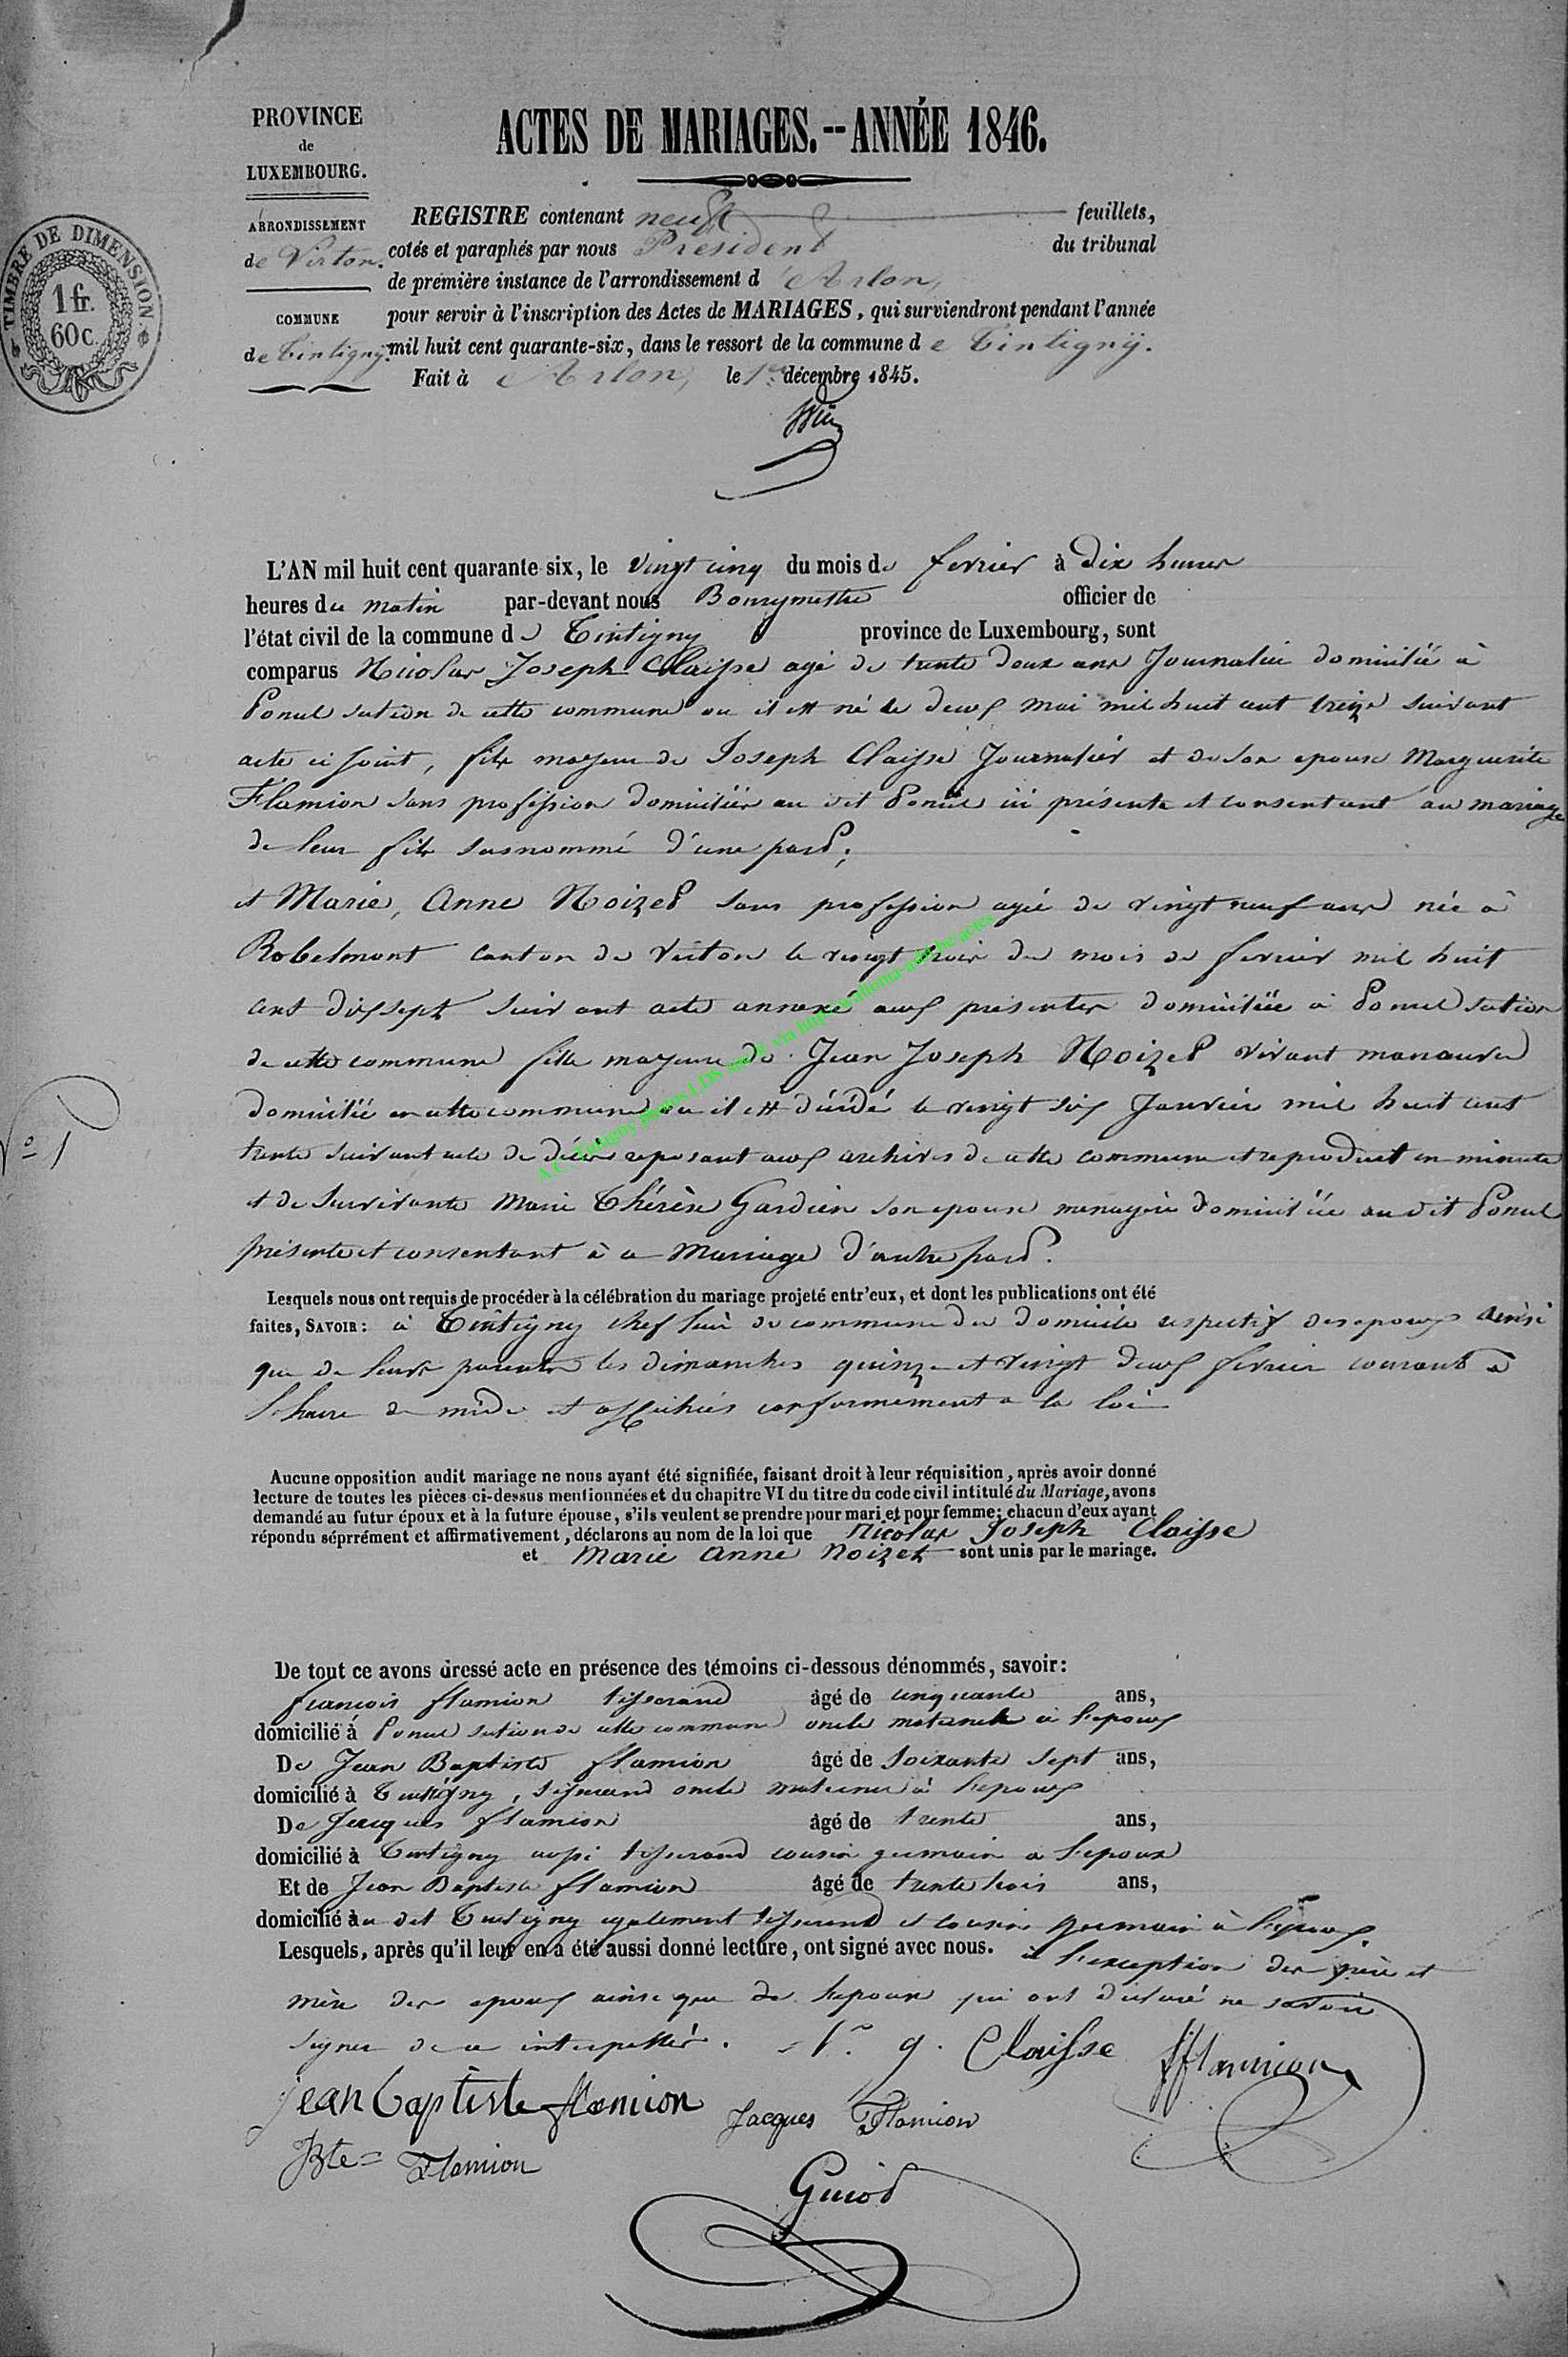 PROVINCE
de
LUXEMBOURG.
ACTES DE MARIAGES.--ANNÉE 1846.
ARRONDISSEMENT
de Virton.
COMMUNE
de Tintigny.
TIMBRE DE DIMENSION.
1 fr.
60 c.
REGISTRE contenant neuf feuillets,
cotés et paraphés par nous Président du tribunal
de première instance de l'arrondissement d'Arlon,
pour servir à l'inscription des Actes de MARIAGES, qui surviendront pendant l'année
mil huit cent quarante-six, dans le ressort de la commune de Tintigny.
Fait à Arlon, le 1er décembre 1845.
L'AN mil huit cent quarante six, le vingt cinq du mois de fevrier à dix heures
heures du matin par-devant nous Bourgmestre officier de
l'état civil de la commune de Tintigny province de Luxembourg, sont
comparus Nicolas Joseph Claisse agé de trente deux ans Journalier domicilié à
Ponsel section de cette commune ou il est né le deux mai mil huit cent treize suivant
acte ci joint, fils majeur de Joseph Claisse Journalier et de son epouse Marguerite
Flamion sans profession domiciliés au dit Ponsel ici présents et consentant au mariage
de leur fils susnommé d'une part;
et Marie, Anne Noizet sans profession agée de vingt neuf ans née à
Robelmont canton de Virton le vingt trois du mois de fevrier mil huit
cent dix sept suivant acte annexé aux présentes domiciliée à Ponsel section
de cette commune fille majeure de Jean Joseph Noizet vivant manœuvre
domicilié en cette commune ou il est décédé le vingt six Janvier mil huit cent
trente suivant acte de décès reposant aux archives de cette commune et reproduit en minute
et de survivante Marie Thérèse Gardien son epouse menagère domiciliée au dit Ponsel
présente et consentant à ce Mariage d'autre part.
N° 1
Lesquels nous ont requis de procéder à la célébration du mariage projeté entr'eux, et dont les publications ont été
faites, SAVOIR: à Tintigny chef lieu de commune du domicile respectif des epoux ainsi
que de leurs parents les dimanches quinze et vingt deux fevrier courant à
l'heure de midi et affichées conformement a la loi
Aucune opposition audit mariage ne nous ayant été signifiée, faisant droit à leur réquisition, après avoir donné
lecture de toutes les pièces ci-dessus mentionnées et du chapitre VI du titre du code civil intitulé du Mariage, avons
demandé au futur époux et à la future épouse, s'ils veulent se prendre pour mari et pour femme; chacun d'eux ayant
répondu séprrément et affirmativement, déclarons au nom de la loi que Nicolas Joseph Claisse
et Marie Anne Noizet sont unis par le mariage.
De tout ce avons dressé acte en présence des témoins ci-dessous dénommés, savoir:
françois flamion tisserand âgé de cinquante ans,
domicilié à Ponsel section de cette commune oncle maternel à l'epoux
De Jean Baptiste flamion âgé de soixante sept ans,
domicilié à Tintigny, tisserand oncle maternel à l'epoux
De Jacques flamion âgé de trente ans,
domicilié à Tintigny aussi tisserand cousin germain a l'epoux
Et de Jean Baptiste flamion âgé de trente trois ans,
domicilié au dit Tintigny egalement tisserand et cousin germain à l'epoux.
Lesquels, après qu'il leur en a été aussi donné lecture, ont signé avec nous. à l'exception des père et
mère des epoux ainsi que de l'epouse qui ont déclaré ne savoir
signer de ce interpellés. N. J. Claisse fflamion
jean baptiste flamion Jacques Flamion
JBte= Flamion
Guiot